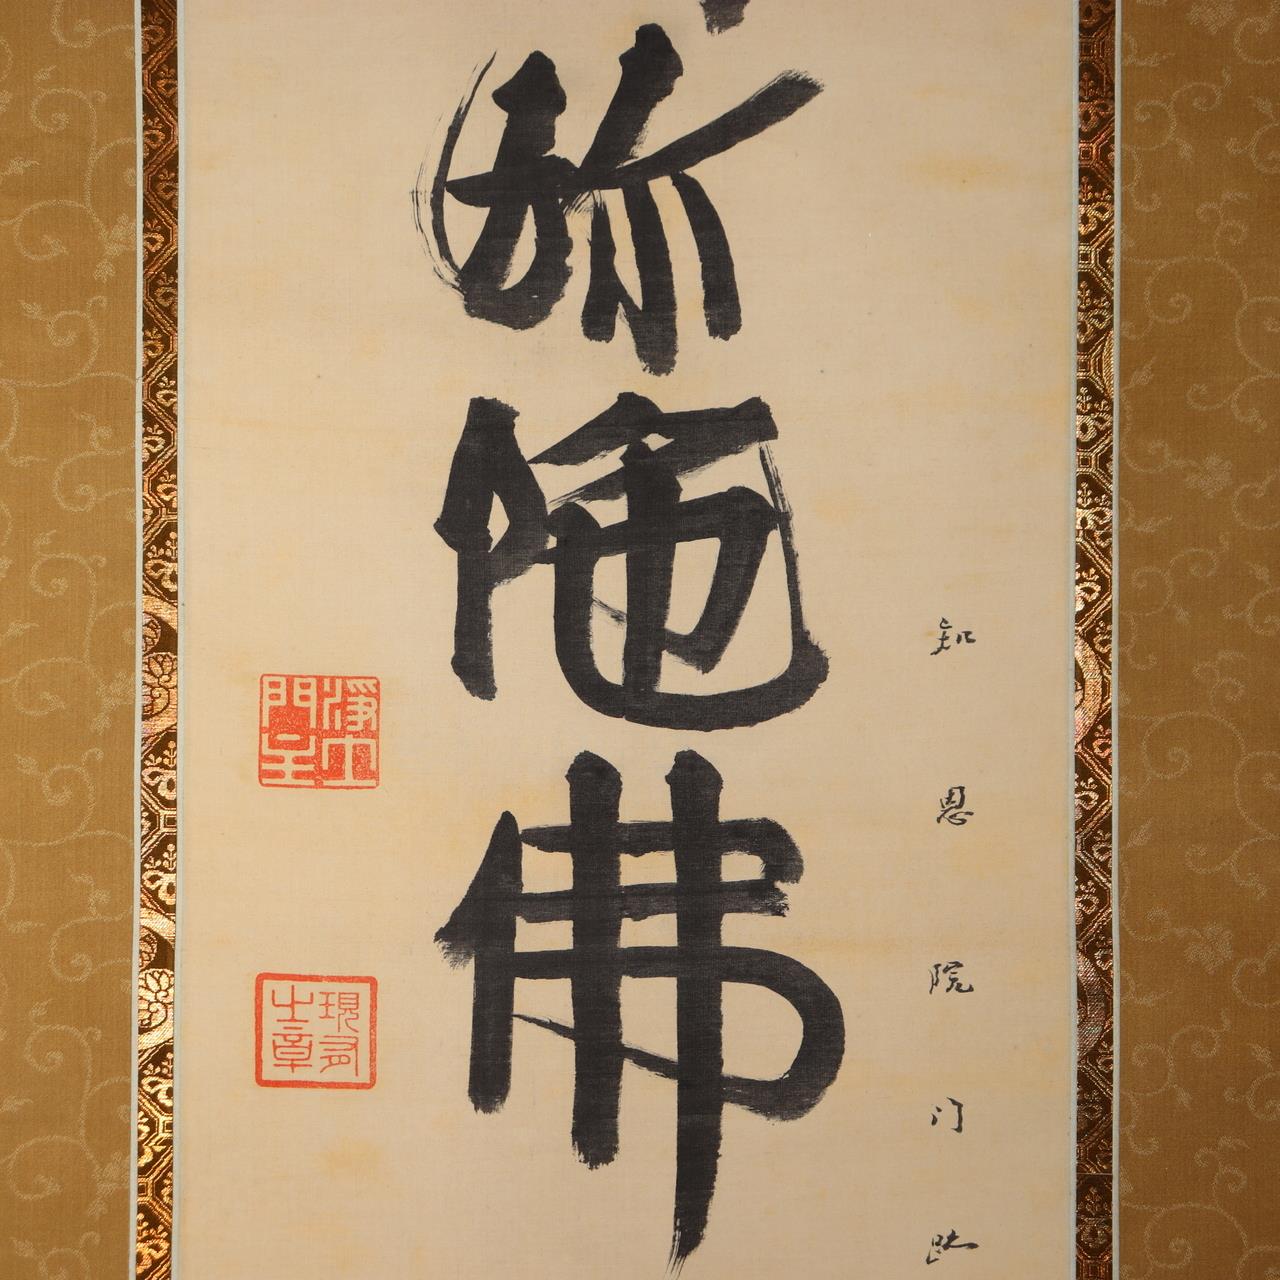 知恩院门跡
弥陀佛
浄土
門主
現有
之章